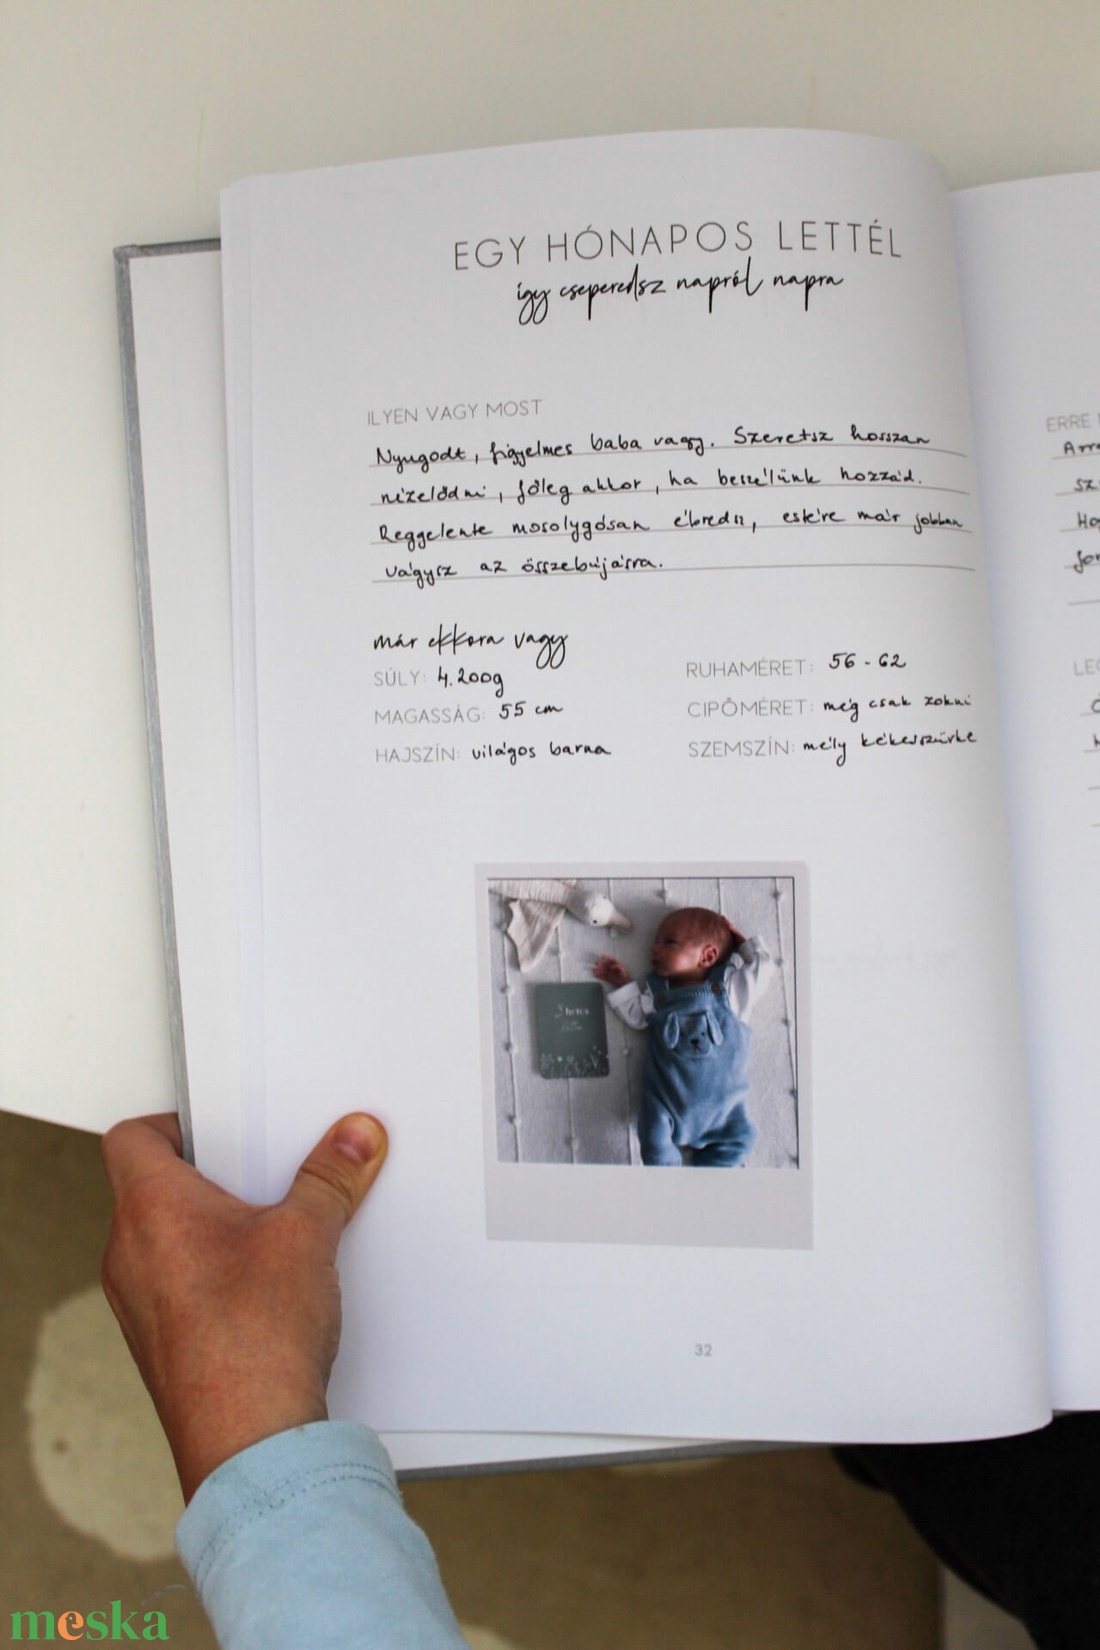 EGY HÓNAPOS LETTÉL
így cseperedsz napról napra
ILYEN VAGY MOST
Nyugodt, figyelmes baba vagy. Szeretsz hosszan
nézelődni, főleg akkor, ha beszélünk hozzád.
Reggelente mosolygósan ébredsz, estére már jobban
vágysz az összebújásra.
már ekkora vagy
SÚLY: 4.200g
MAGASSÁG: 55 cm
HAJSZÍN: világos barna
RUHAMÉRET: 56 - 62
CIPŐMÉRET: még csak zokni
SZEMSZÍN: mély kékesszürke
hetes
32
ERRE
meska